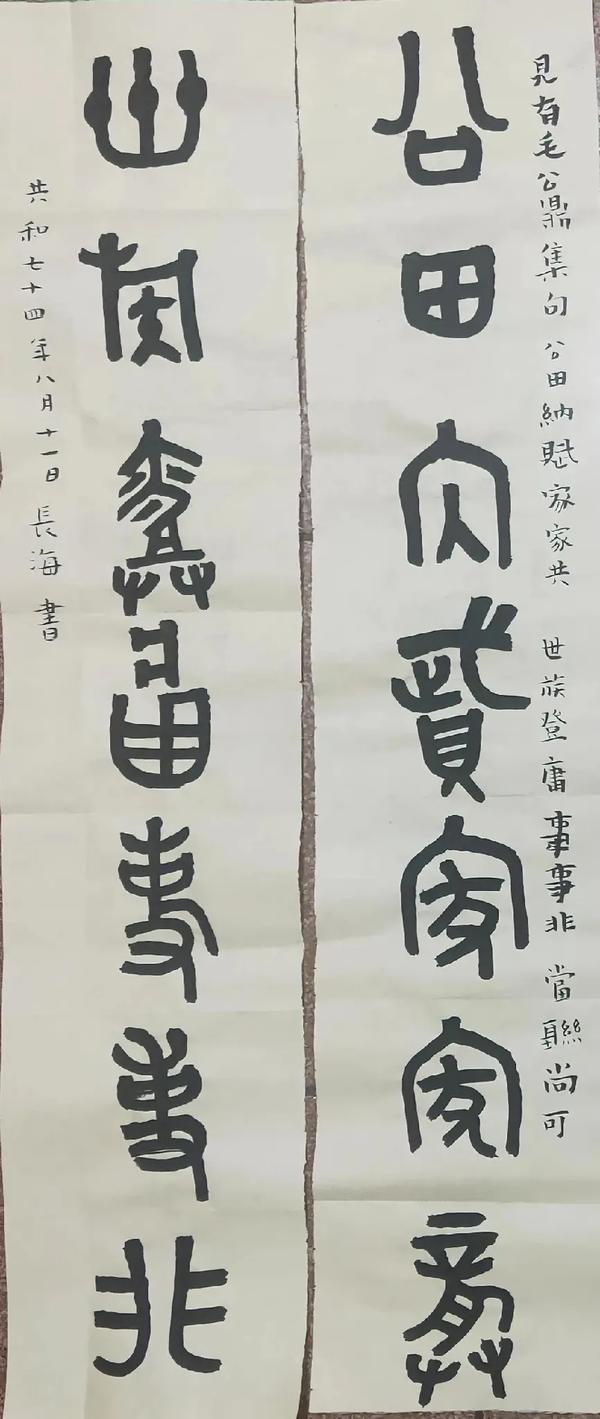 見有毛公鼎集句 公田納賦家家共 世族登庸事事非 當聯尚可
公田内賦家家龏
世族登庸事事非
共和七十四年八月十一日 長海書